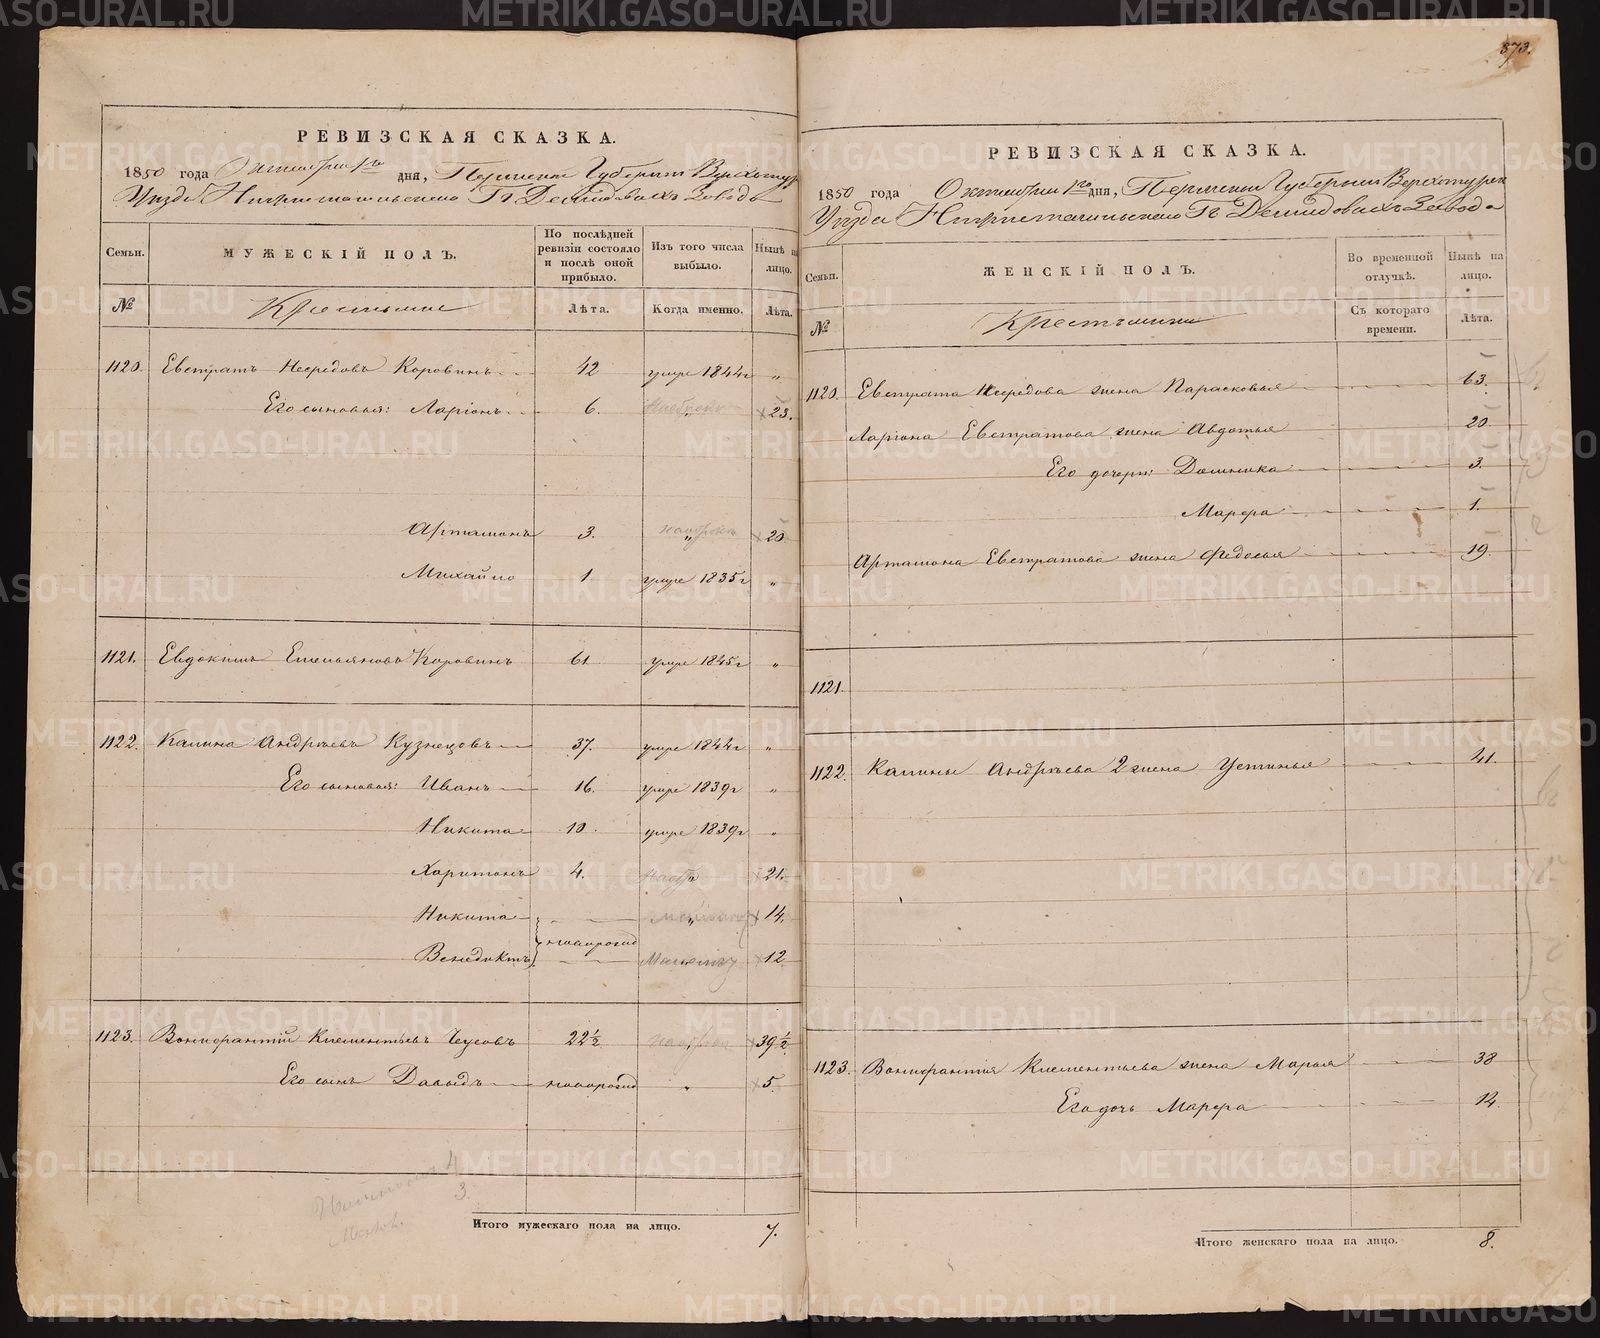 873.
РЕВИЗСКАЯ СКАЗКА.
1850 года Октября 1го дня, Пермской Губернiи Верхотур
Уезда Нижнетагильскаго Гг Демидовыхъ Завода
Семьи. МУЖЕСКІЙ ПОЛЪ. По послѣдней ревизіи состояло и послѣ оной прибыло. Изъ того числа выбыло. Нынѣ на лицо.
№ Крестьяне Лѣта. Когда именно. Лѣта.
1120. Евстратъ Нефедовъ Коровинъ 42 умре 1844г "
Его сыновья: Ларіонъ 6. " 23.
Арта­монъ 3. " 20
Михайло 1 умре 1835г "
1121. Евдокимъ Емельяновъ Коровинъ 61 умре 1845г "
1122. Калина Андреевъ Кузнецовъ 37. умре 1844г "
Его сыновья: Иванъ 16. умре 1839г "
Никита 10. умре 1839г "
Харитонъ 4. " 21.
Никита " 14.
новорожд
Венедиктъ 12
1123. Вонифантій Клементьевъ Чусовъ 22½ 39½
Его сынъ Давыдъ новорожд " 5
4
3.
Итого мужескаго пола на лицо. 7.
РЕВИЗСКАЯ СКАЗКА.
1850 года Октября 1го дня, Пермской Губерніи Верхотурск
Уезда Нижнетагильскаго Гг Демидовыхъ Завода
Семьи. ЖЕНСКІЙ ПОЛЪ. Во временной отлучкѣ. Нынѣ на лицо.
№ Крестьянки Съ котораго времени. Лѣта.
1120. Евстрата Нефедова жена Парасковья 63.
Ларіона Евстратова жена Авдотья 20
Его дочери: Домника 3.
Марфа 1.
Артамона Евстратова жена Федосья 19
1121.
1122. Калины Андреева 2 жена Устинья 41.
1123. Вонифантія Клементьева жена Марья 38
Его дочь Марфа 12.
Итого женскаго пола на лицо. 8.
METRIKI.GASO-URAL.RU